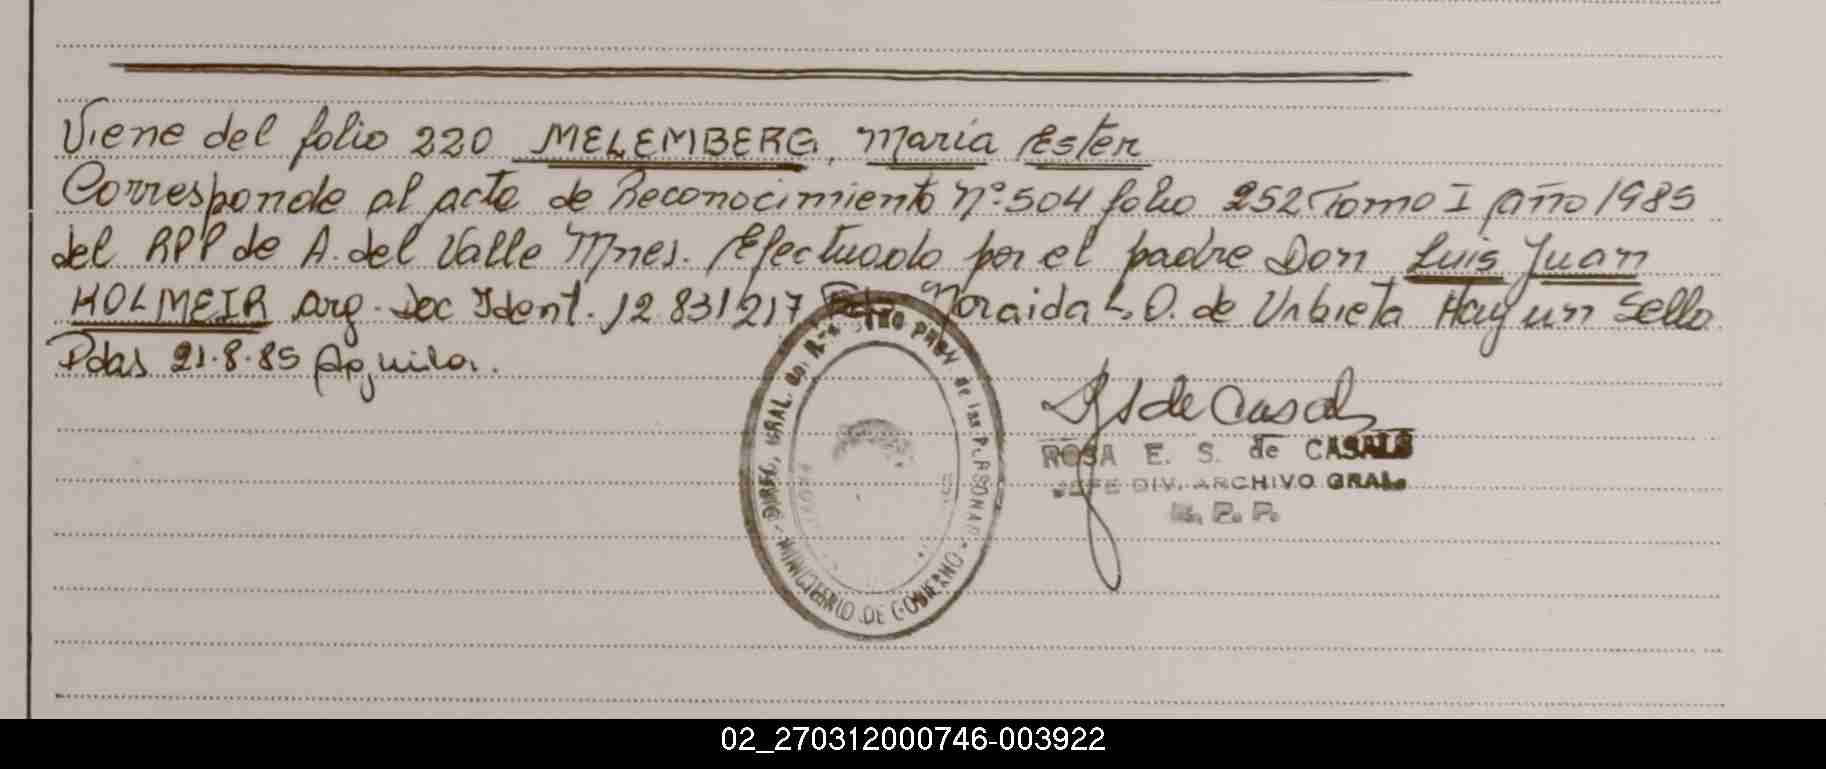 Viene del folio 220 MELEMBERG, María Ester
Corresponde al acta de Reconocimiento Nº 504 folio 252 Tomo I año 1985
del RPP de A. del Valle Mnes. Efectuado por el padre Don Luis Juan
HOLMEIR arg. Doc Ident. 12 831217 Fdo Noraida L. O. de Urbieta Hay un sello
Pdas 21.8.85 Aguila.
DIREC. GRAL. do. PROV de las PERSONAS
MINISTERIO DE GOBIERNO
S de Casals
ROSA E. S. de CASALS
JEFE DIV. ARCHIVO GRAL.
R. P. P.
02_270312000746-003922